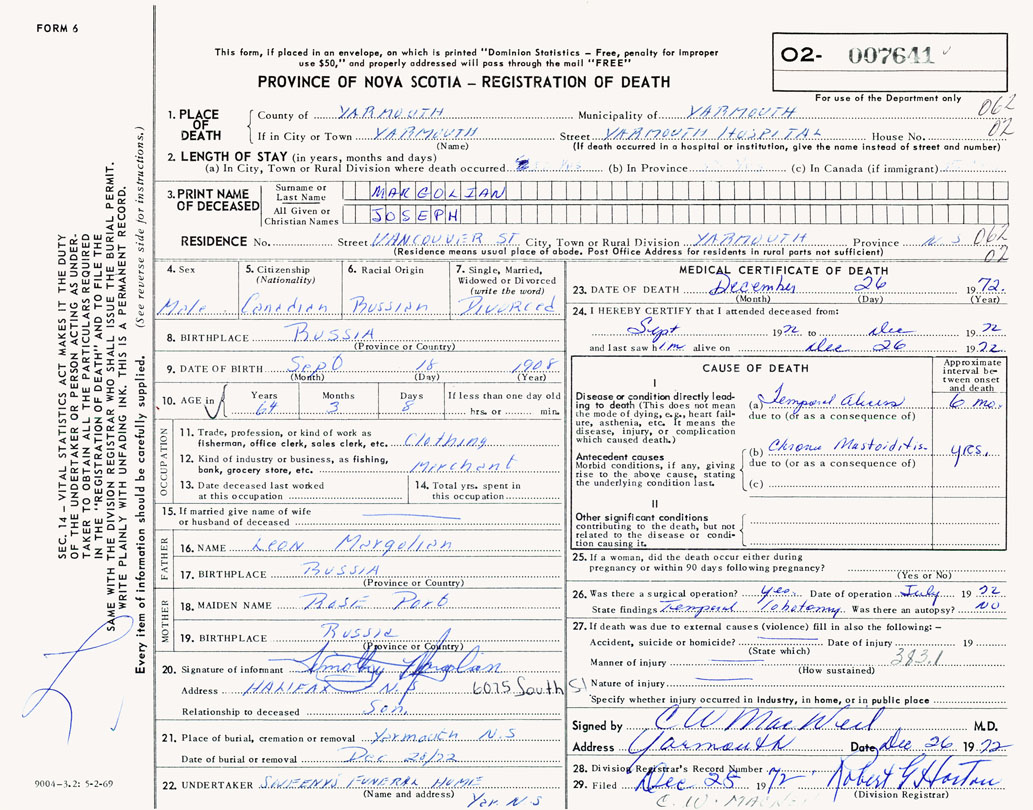 FORM 6
This form, if placed in an envelope, on which is printed "Dominion Statistics – Free, penalty for improper
use $50," and properly addressed will pass through the mail "FREE"
PROVINCE OF NOVA SCOTIA – REGISTRATION OF DEATH
02- 007641
For use of the Department only
062
02
1. PLACE OF DEATH
County of YARMOUTH Municipality of YARMOUTH
If in City or Town YARMOUTH Street YARMOUTH HOSPITAL House No.
(Name) (If death occurred in a hospital or institution, give the name instead of street and number)
2. LENGTH OF STAY (in years, months and days)
(a) In City, Town or Rural Division where death occurred (b) In Province (c) In Canada (if immigrant)
3. PRINT NAME OF DECEASED
Surname or Last Name MARGOLIAN
All Given or Christian Names JOSEPH
RESIDENCE No. Street VANCOUVER ST. City, Town or Rural Division YARMOUTH Province N S 062
(Residence means usual place of abode. Post Office Address for residents in rural parts not sufficient) 02
4. Sex
Male
5. Citizenship
(Nationality)
Canadian
6. Racial Origin
Russian
7. Single, Married,
Widowed or Divorced
(write the word)
Divorced
8. BIRTHPLACE RUSSIA
(Province or Country)
9. DATE OF BIRTH Sept 18 1908
(Month) (Day) (Year)
10. AGE in
Years Months Days If less than one day old
64 3 8 hrs. or min.
OCCUPATION
11. Trade, profession, or kind of work as
fisherman, office clerk, sales clerk, etc. Clothing
12. Kind of industry or business, as fishing,
bank, grocery store, etc. Merchant
13. Date deceased last worked
at this occupation
14. Total yrs. spent in
this occupation
15. If married give name of wife
or husband of deceased
FATHER
16. NAME Leon Margolian
17. BIRTHPLACE RUSSIA
(Province or Country)
MOTHER
18. MAIDEN NAME Rose
19. BIRTHPLACE Russia
(Province or Country)
20. Signature of informant Timothy Margolian
Address HALIFAX N.S 6075 South St
Relationship to deceased Son
21. Place of burial, cremation or removal Yarmouth N.S
Date of burial or removal Dec 28/72
22. UNDERTAKER SWEENY'S FUNERAL HOME
(Name and address) Yar. N S
MEDICAL CERTIFICATE OF DEATH
23. DATE OF DEATH December 26 1972
(Month) (Day) (Year)
24. I HEREBY CERTIFY that I attended deceased from:
Sept 1972 to Dec 1972
and last saw him alive on Dec 26 1972
CAUSE OF DEATH
Approximate
interval be-
tween onset
and death
I
Disease or condition directly lead-
ing to death (This does not mean
the mode of dying, e.g., heart fail-
ure, asthenia, etc. It means the
disease, injury, or complication
which caused death.)
(a) Temporal Abscess 6 mo.
due to (or as a consequence of)
Antecedent causes
Morbid conditions, if any, giving
rise to the above cause, stating
the underlying condition last.
(b) Chronic Mastoiditis yrs.
due to (or as a consequence of)
(c)
II
Other significant conditions
contributing to the death, but not
related to the disease or condi-
tion causing it.
25. If a woman, did the death occur either during
pregnancy or within 90 days following pregnancy?
(Yes or No)
26. Was there a surgical operation? yes. Date of operation July 1972
State findings Temporal lobotomy Was there an autopsy? NO
27. If death was due to external causes (violence) fill in also the following:–
Accident, suicide or homicide? Date of injury 19
(State which) 383.1
Manner of injury
(How sustained)
Nature of injury
Specify whether injury occurred in Industry, in home, or in public place
Signed by C W MacNeil M.D.
Address Yarmouth Date Dec 26 1972
28. Division Registrar's Record Number
29. Filed Dec 28 1972 Robert G Horton
(Division Registrar)
SEC. 14 – VITAL STATISTICS ACT MAKES IT THE DUTY
OF THE UNDERTAKER OR PERSON ACTING AS UNDER-
TAKER TO OBTAIN ALL THE PARTICULARS REQUIRED
IN THE "REGISTRATION OF DEATH" AND TO FILE THE
SAME WITH THE DIVISION REGISTRAR WHO SHALL ISSUE THE BURIAL PERMIT.
WRITE PLAINLY WITH UNFADING INK. THIS IS A PERMANENT RECORD.
Every item of information should be carefully supplied. (See reverse side for instructions.)
9004-3.2: 5-2-69